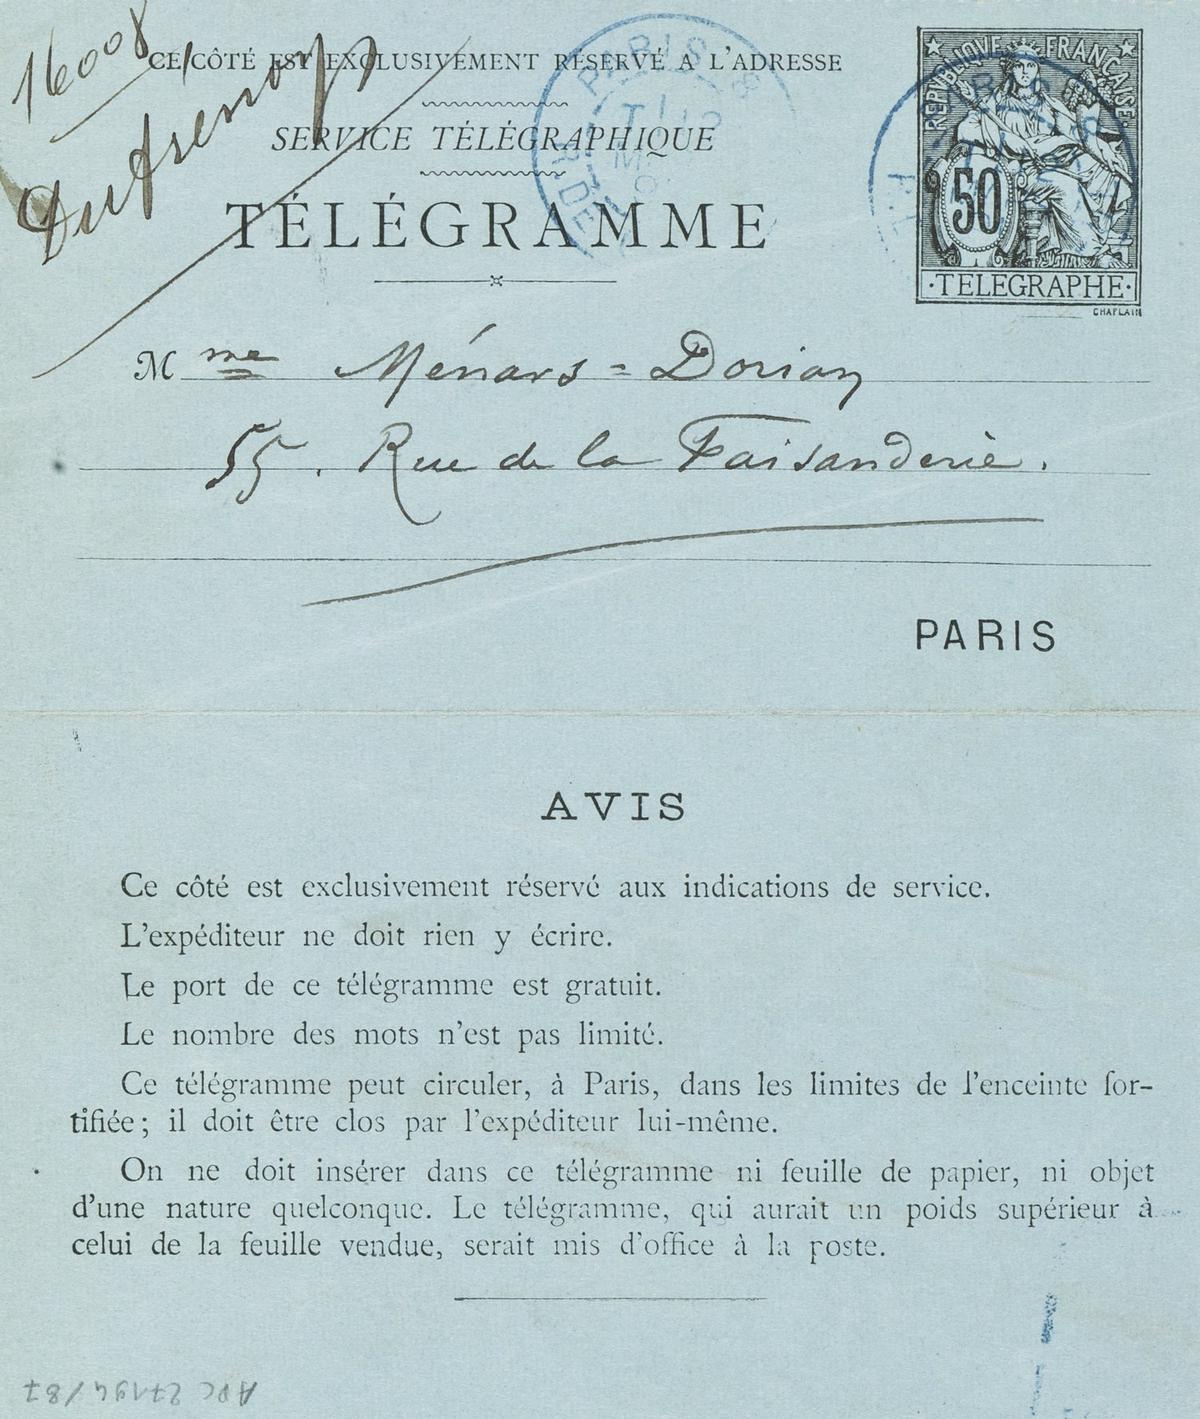 16008
Dufrenoy
CE CÔTÉ EST EXCLUSIVEMENT RÉSERVÉ A L'ADRESSE
SERVICE TÉLÉGRAPHIQUE
TÉLÉGRAMME
PARIS
RÉPUBLIQUE FRANÇAISE
50
TELEGRAPHE
CHAPLAIN
Mme Ménars=Dorian
55. Rue de la Faisanderie.
PARIS
AVIS
Ce côté est exclusivement réservé aux indications de service.
L'expéditeur ne doit rien y écrire.
Le port de ce télégramme est gratuit.
Le nombre des mots n'est pas limité.
Ce télégramme peut circuler, à Paris, dans les limites de l'enceinte for-
tifiée; il doit être clos par l'expéditeur lui-même.
On ne doit insérer dans ce télégramme ni feuille de papier, ni objet
d'une nature quelconque. Le télégramme, qui aurait un poids supérieur à
celui de la feuille vendue, serait mis d'office à la poste.
APC 27194/87